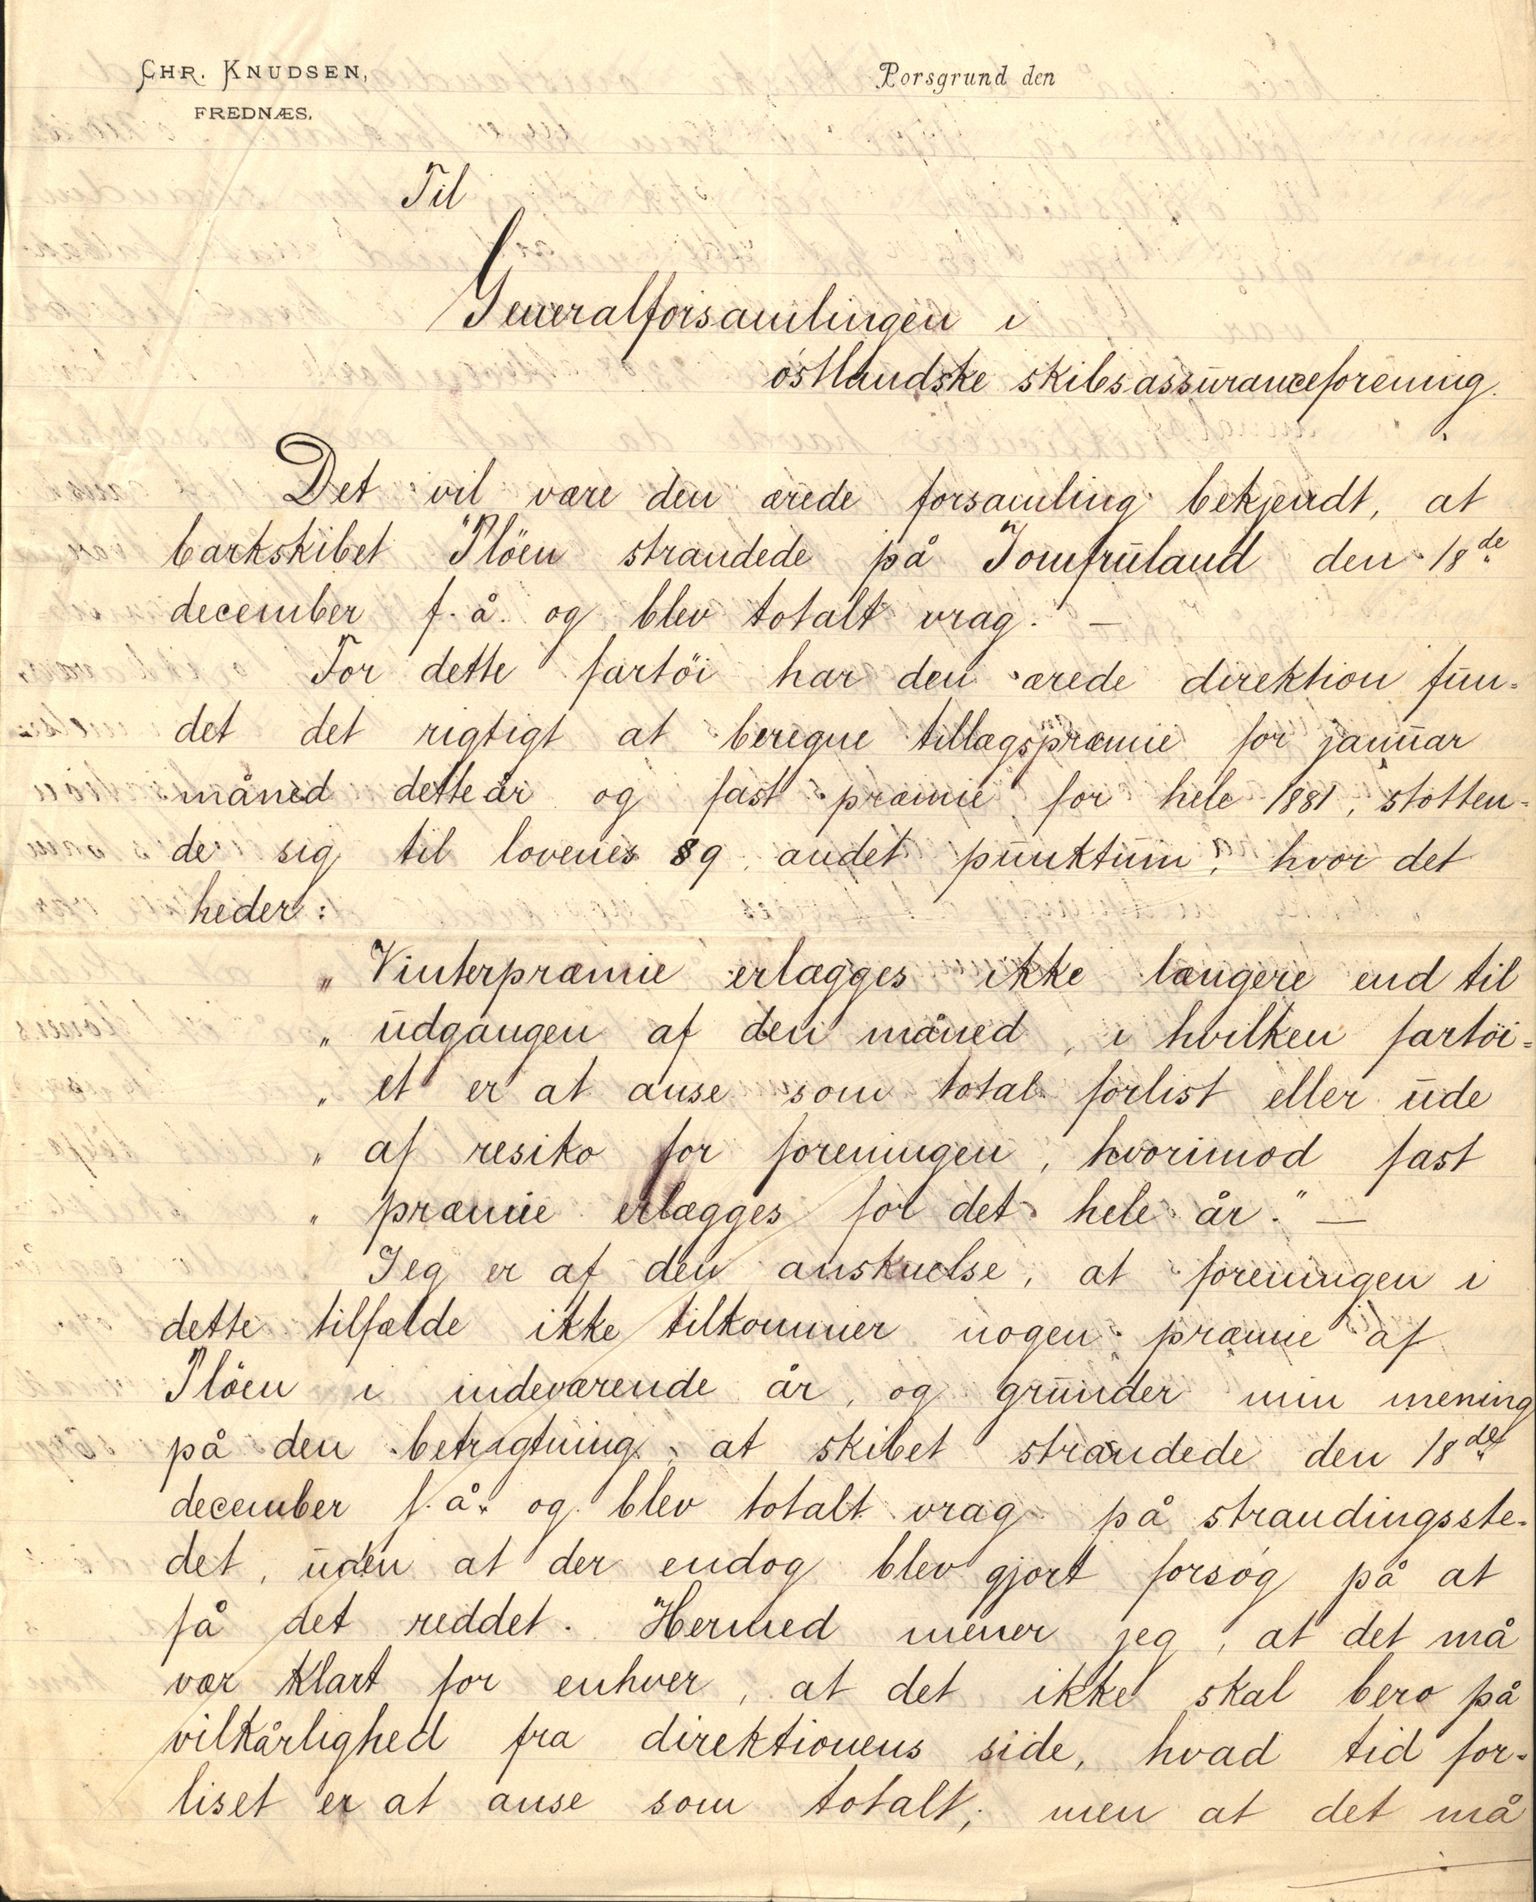 CHR. KNUDSEN,
FREDNÆS.
Porsgrund den
Til
Generalforsamlingen i
østlandske skibsassuranceforening.
Det vil være den ærede forsamling bekjendt, at
barkskibet "Pløen strandede på Jomfruland den 18de
december f. å. og blev totalt vrag. —
For dette fartöi har den ærede direktion fun-
det det rigtigt at beregne tillægspræmie for januar
måned dette år og fast præmie for hele 1881, støtten-
de sig til lovenes § 9, andet punktum, hvor det
heder:
„ Vinterpræmie erlægges ikke længere end til
„ udgangen af den måned, i hvilken fartöi-
„ et er at anse som total forlist eller ude
„ af resiko for foreningen, hvorimod fast
„ præmie erlægges for det hele år." —
Jeg er af den anskuelse, at foreningen i
dette tilfælde ikke tilkommer nogen præmie af
Plöen i indeværende år, og grunder min mening
på den betragtning, at skibet strandede den 18de
december f. å. og blev totalt vrag på strandingsste-
det, uden at der endog blev gjort forsøg på at
få det reddet. Hermed mener jeg, at det må
vær klart for enhver, at det ikke skal bero på
vilkårlighed fra direktionens side, hvad tid for-
liset er at anse som totalt; men at det må